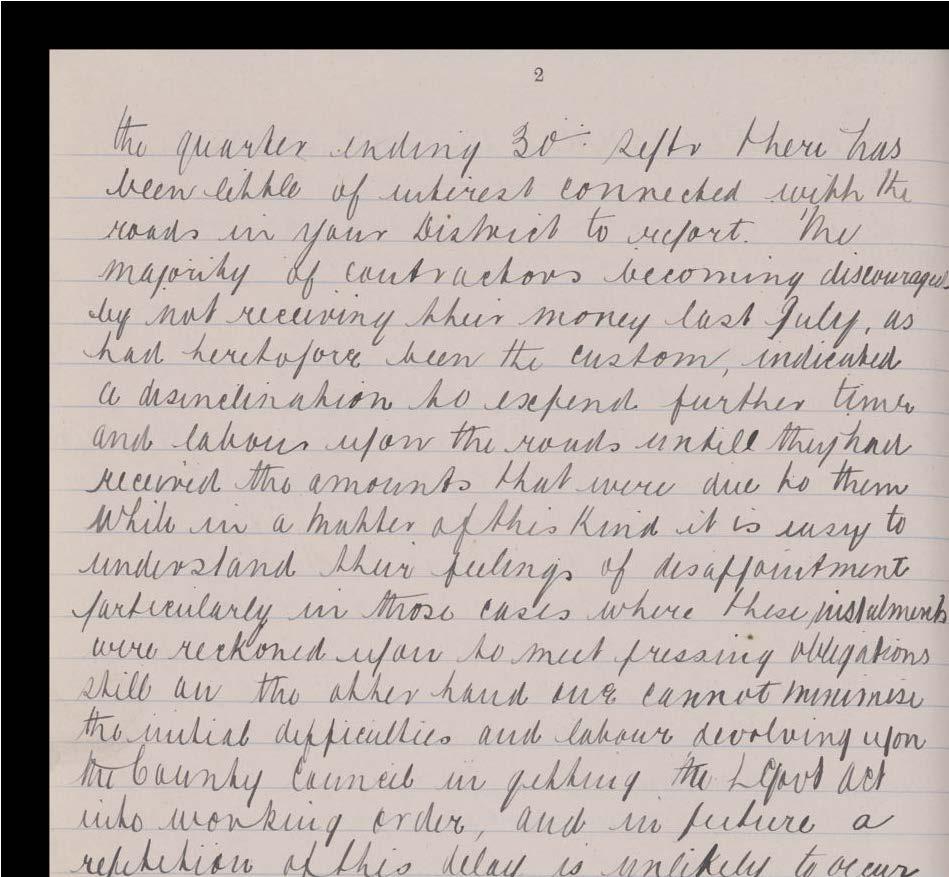 2
the quarter ending 30th Septr there has
been little of interest connected with the
roads in your District to report. The
majority of contractors becoming discouraged
by not receiving their money last July, as
had heretofore been the custom, indicated
a disinclination to expend further time
and labour upon the roads untill they had
received the amounts that were due to them
While in a matter of this Kind it is easy to
understand their feelings of disappointment
particularly in those cases where these instalments
were reckoned upon to meet pressing obligations
still on the other hand one cannot minimise
the initial difficulties and labour devolving upon
the County Council in getting the L Govt Act
into working order, and in future a
repetition of this delay is unlikely to occur